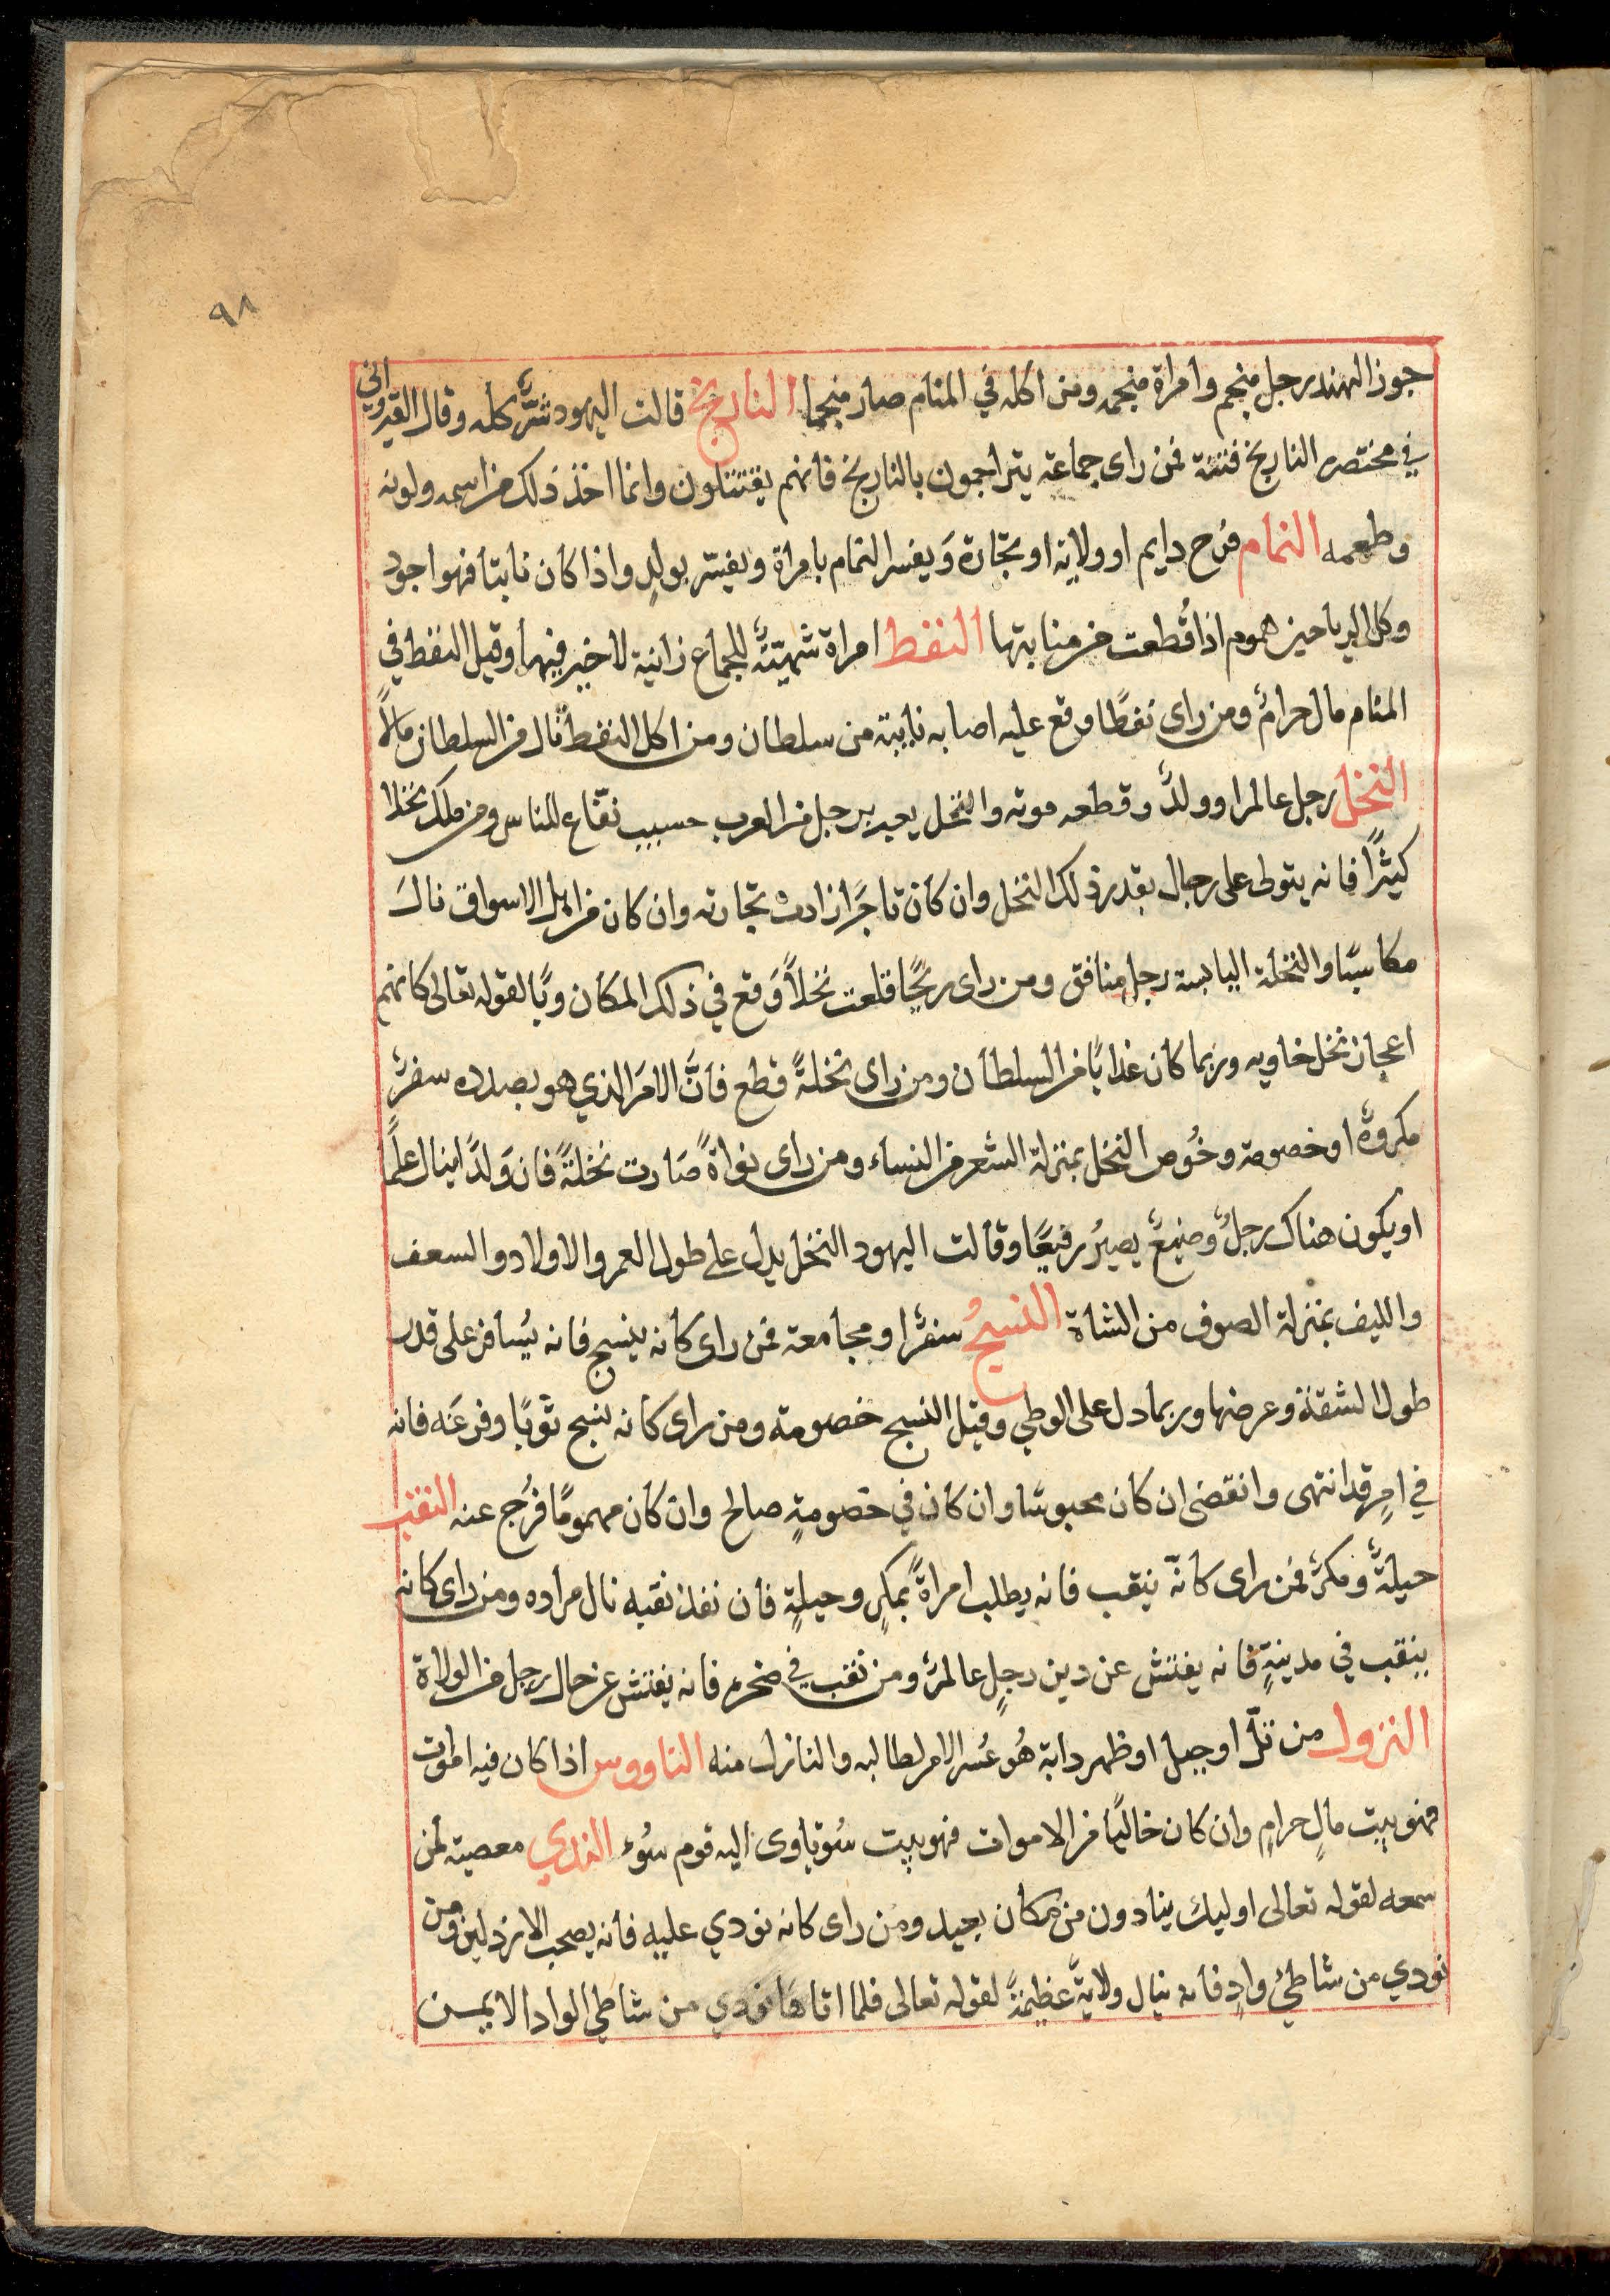 ٩٨
جوز الهند رجل منجم وامراة منجمه ومن اكله في المنام صار منجما النارنج قالت اليهود شرٌّ كله وقال القيرواني
في مختصره النارنج فتنة فمن راى جماعة يتراجمون بالنارنج فانهم يفتتلون وانما اخذ ذلك من اسمه ولونه
وطعمه النمام فرح دايم او ولاية او تجّارة وَيفسر النمام بامراة ويفسّر بولدٍ واذا كان نابتا فهو اجود
وكل الرياحين هموم اذا قُطعت من منابتها النفط امراة شهيّةٌ للجماع زانية لا خير فيها وقيل النفط في
المنام مال حرامٌ ومن راى نفطًا وقع عليه اصابه نايبة من سلطان ومن اكل النفط نال من السلطان مالاً
النخل رجل عالم او ولدٌ وقطعه موته والنخل يعبر برجل من العرب حسيب نفّاع للناس ومن ملك نخلا
كثيرًا فانه يتولى على رجال بقدر ذلك النخل وان كان تاجرًا زادت تجارته وان كان من اهل الاسواق نال
مكاسبًا والنخلة اليابسة رجل منافق ومن راى ريحًا قلعت نخلاً وَقع في ذلك المكان وبًا لقوله تعالى كانهم
اعجاز نخل خاويه وربما كان عذابًا من السلطان ومن راى نخلةً قطع فانَّ الامرَ الذي هو بصدده سفرٌ
مكروهٌ او خصومة وخُوص النخل بمنزلة الشعر من النساء ومن راى نواةً صَارت نخلةً فان وَلدًا ينال علمًا
او يكون هناك رجلٌ وضيعٌ يصيرُ رفيعًا وقالت اليهود النخل يدل على طول العمر والاولاد والسعف
والليف بمنزلة الصوف من الشاة النسيجُ سفرٌ او مجامعة فمن راى كانه ينسج فانه يُسافر على قدر
طول الشقة وعرضها وربما دل على الوطي وقيل النسج خصومة ومن راى كانه ينسج ثوبًا وفرغَه فانه
في امرٍ قد انتهى وانقضى ان كان محبوسًا وان كان في خصومةٍ صالح وان كان مهمومًا فرُج عنه النقب
حيلةٌ ومكرٌ فمن راى كانّه ينقب فانه يطلب امراةً بمكرٍ وحيلةٍ فان نفذ نقبه نال مراده ومن راى كانه
ينقب في مدينةٍ فانه يفتش عن دين رجلٍ عالمٍ ومن نقب في صخره فانه يفتش عن حال رجل من الولاة
النزول من تلّ او جبل او ظهر دابة هُو عُسر الامر لطالبه والنازل منه الناووس اذا كان فيه اموات
فهو بيت مالٍ حرامٍ وان كان خاليًا من الاموات فهو بيت سُو ياوى اليه قوم سُوء الندي معصية لمن
سمعه لقوله تعالى اوليك ينادون من مكان بعيد ومن راى كانه نودي عليه فانه يصحب الارذلين ومن
نودي من شاطئ وادٍ فانه ينال ولايةً عظيمةً لقوله تعالى فلما اتاها نودي من شاطي الواد الايمن